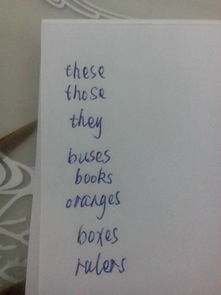 these
those
they
buses
books
oranges
boxes
rulers